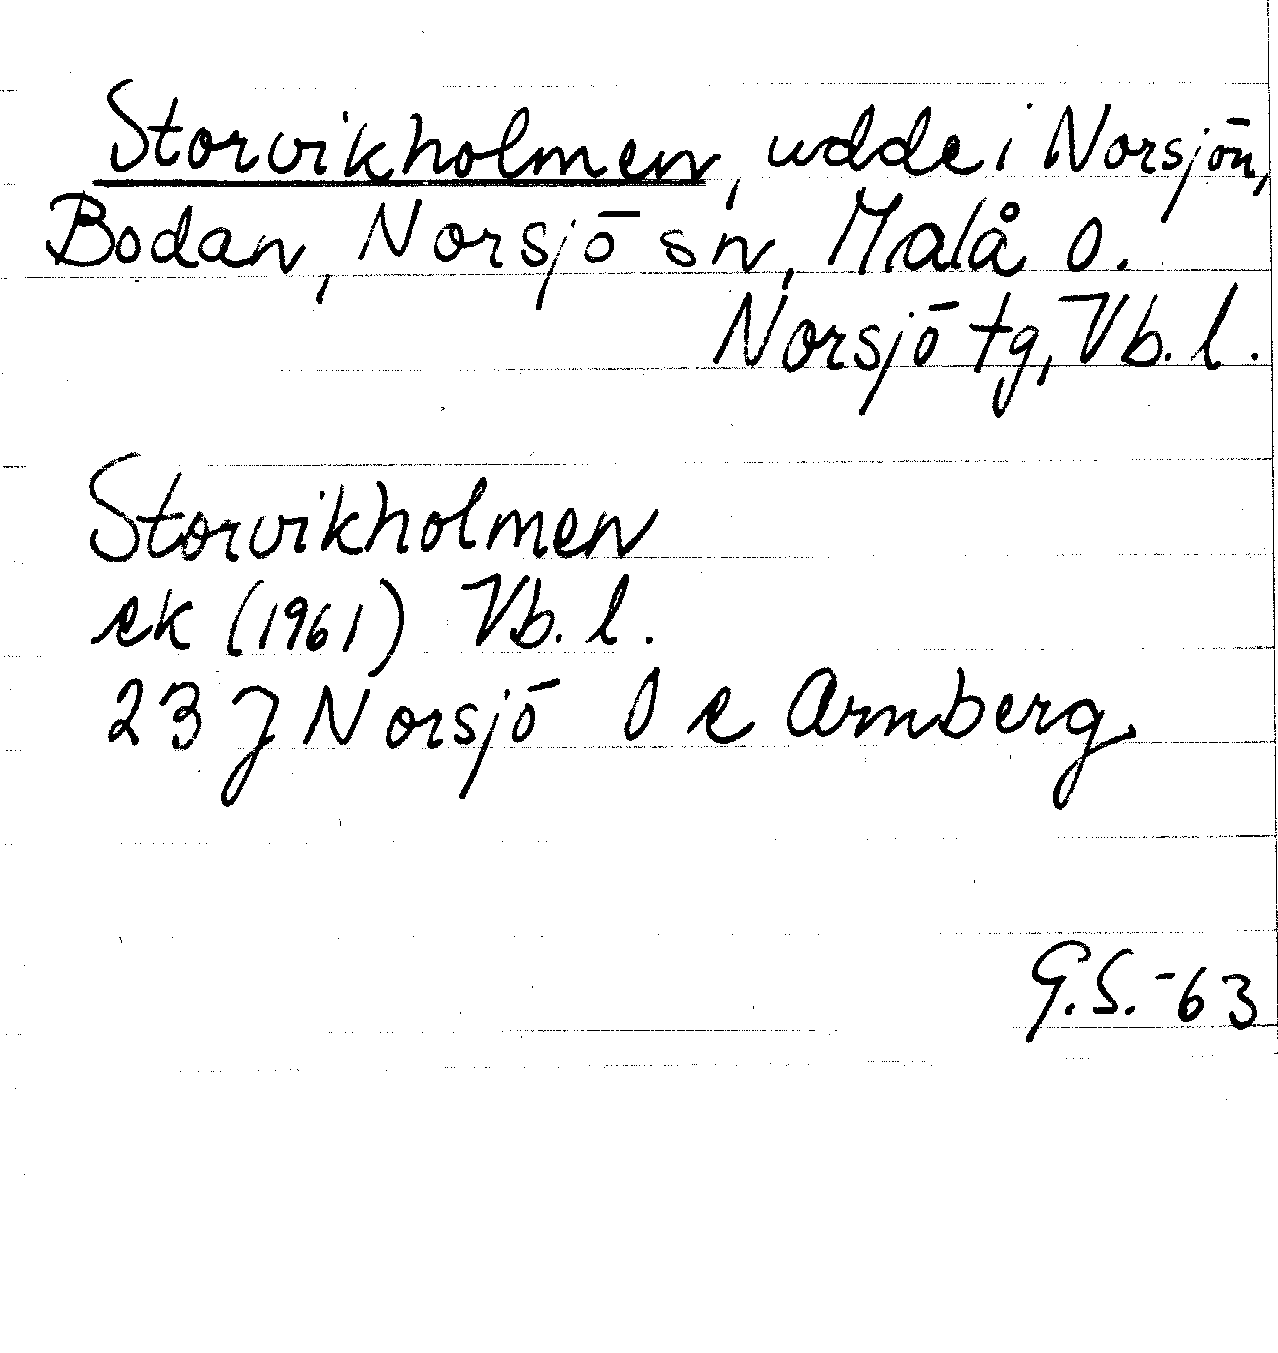 Storvikholmen, udde i Norsjön,
Bodan, Norsjö sn, Malå o.
Norsjö tg, Vb. l.
Storvikholmen
ek (1961) Vb. l.
23 J Norsjö O e Armberg
G.S.-63